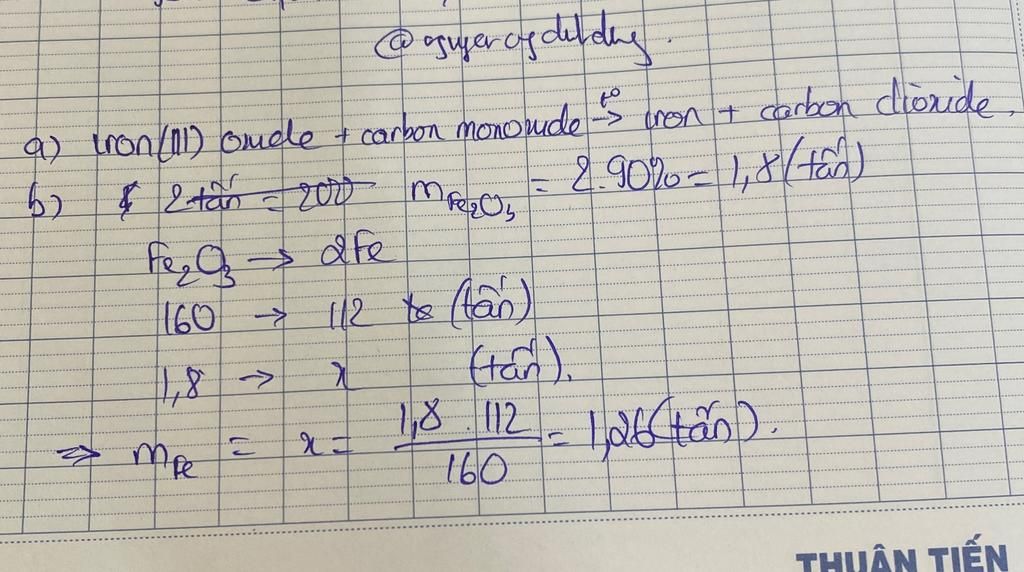 a) iron(III) oxide + carbon monoxide t° → iron + carbon dioxide.
b) 2 tấn = 200 mFe₂O₃ = 2.90% = 1,8 (tấn)
Fe₂O₃ → 2Fe
160 → 112 (tấn)
1,8 → x (tấn).
⇒ mFe = x = 1,8 . 112 / 160 = 1,26 (tấn).
THUẬN TIẾN